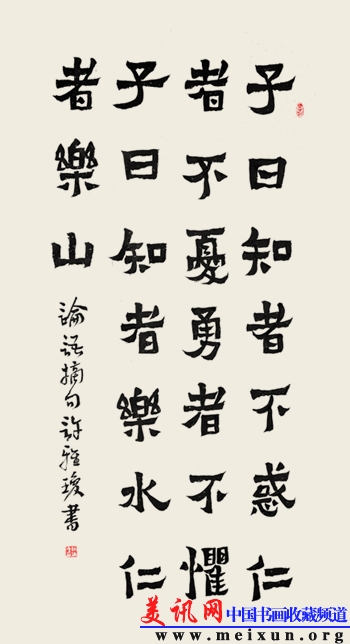 子曰知者不惑仁
者不憂勇者不懼
子曰知者樂水仁
者樂山
論語摘句許雅瓊書
美讯网 中国书画收藏频道
www.meixun.org